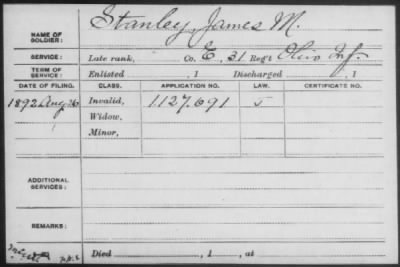 NAME OF SOLDIER: Stanley, James M.
SERVICE: Late rank, Co. E, 31 Reg't Ohio Inf.
TERM OF SERVICE: Enlisted , 1 Discharged , 1
DATE OF FILING. CLASS. APPLICATION NO. LAW. CERTIFICATE NO.
1892 Aug 26 Invalid, 1127.691
Widow,
Minor,
ADDITIONAL SERVICES:
REMARKS:
Died , 1 , at